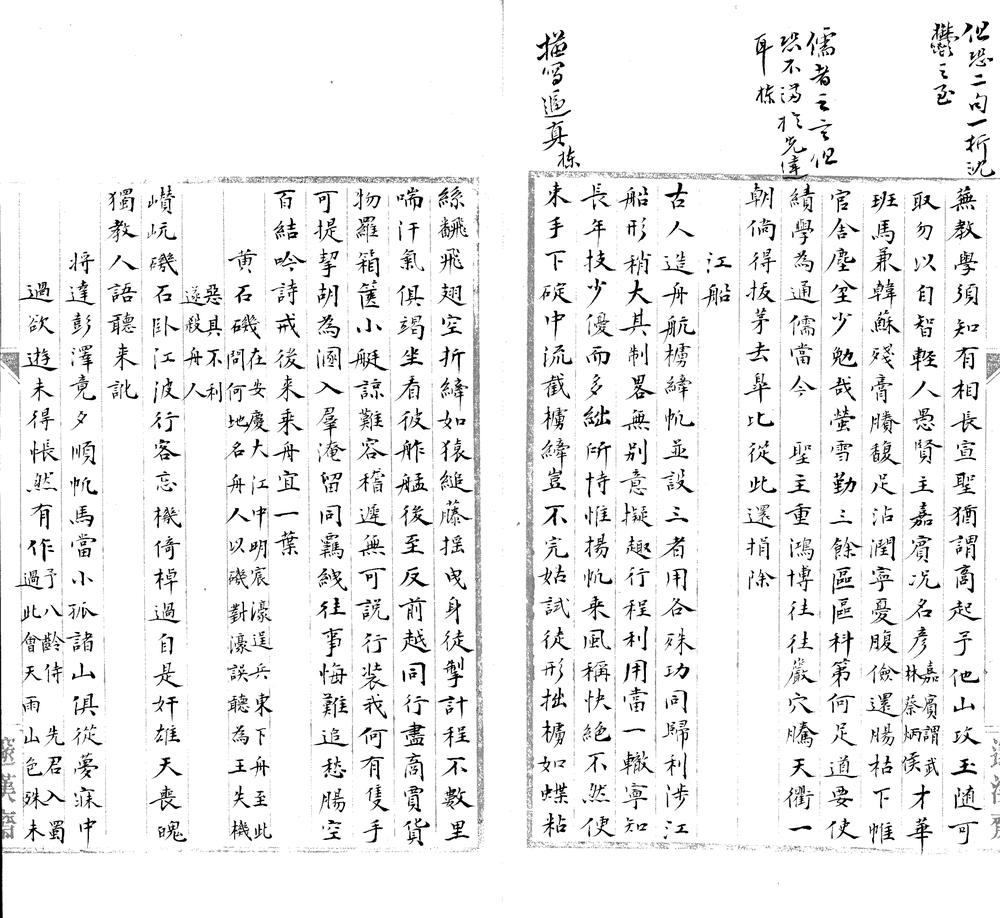 但恐二句一折沉
鬱之至
儒者之言但
恐不滿於先達
耳 栋
描寫逼真 栋
蕪教學須知有相長宣聖猶謂商起予他山攻玉随可
取勿以自智輕人愚賢主嘉賓况名彥嘉賓謂武林蔡炳侯才華
班馬兼韓蘇殘膏賸馥足沾潤寧憂腹儉還腸枯下帷
官舍塵坌少勉哉螢雪勤三餘區區科第何足道要使
績學為通儒當今 聖主重鴻博往往巖穴騰天衢一
朝倘得拔茅去皐比從此還捐除
江船
古人造舟航櫓縴帆並設三者用各殊功同歸利涉江
船形稍大其制畧無别意擬趣行程利用當一轍寧知
長年技少優而多絀所恃惟揚帆乘風稱快絕不然便
束手下碇中流截櫓縴豈不完姑試徒形拙櫓如蝶粘
絲翻飛翅空折縴如猿縋藤摇曳身徒掣計程不數里
喘汗氣俱竭坐看彼舴艋後至反前越同行盡商賈貨
物羅箱篋小艇諒難容稽遲無可説行装我何有隻手
可提挈胡為溷入羣淹留同羈絏往事悔難追愁腸空
百結吟詩戒後來乘舟宜一葉
黄石磯在安慶大江中明宸濠逞兵東下舟至此問何地名舟人以磯對濠誤聽為王失機
惡其不利遂殺舟人
巑岏磯石卧江波行客忘機倚棹過自是奸雄天喪魄
獨教人語聽來訛
將達彭澤竟夕順帆馬當小孤諸山俱從夢寐中
過欲遊未得悵然有作予八齡侍 先君入蜀過此會天雨山色殊未